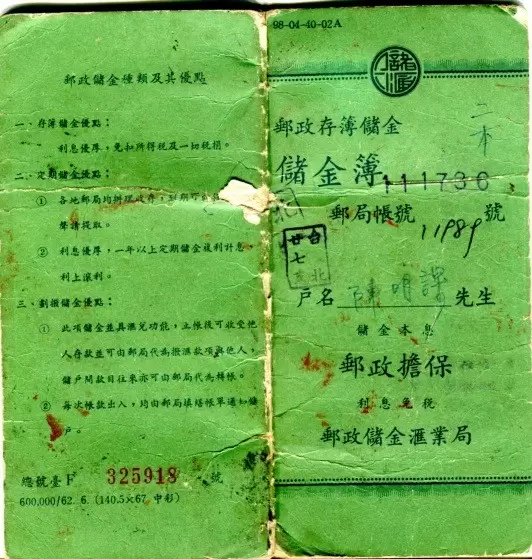 郵政儲金種類及其優點
一、存簿儲金優點:
利息優厚,免扣所得稅及一切稅捐。
二、定期儲金優點:
① 各地郵局均辦理收存,到期可
聲請提取。
② 利息優厚,一年以上定期儲金複利計息,
利上滾利。
三、劃撥儲金優點:
① 此項儲金並具滙兌功能,立帳後可收受他
人存款並可由郵局代為撥滙款項與他人,
儲戶間款目往來亦可由郵局代為轉帳。
② 每次帳款出入,均由郵局填繕帳單通知儲
戶。
總號臺F 325918 號
600,000/62. 6. (140.5×67. 中彩)
98-04-40-02A
儲滙
二本
郵政存簿儲金
儲金簿 111736
郵局帳號 11989 號
台北
廿七支
戶名 陳明 先生
儲金本息
郵政擔保
利息免稅
郵政儲金滙業局